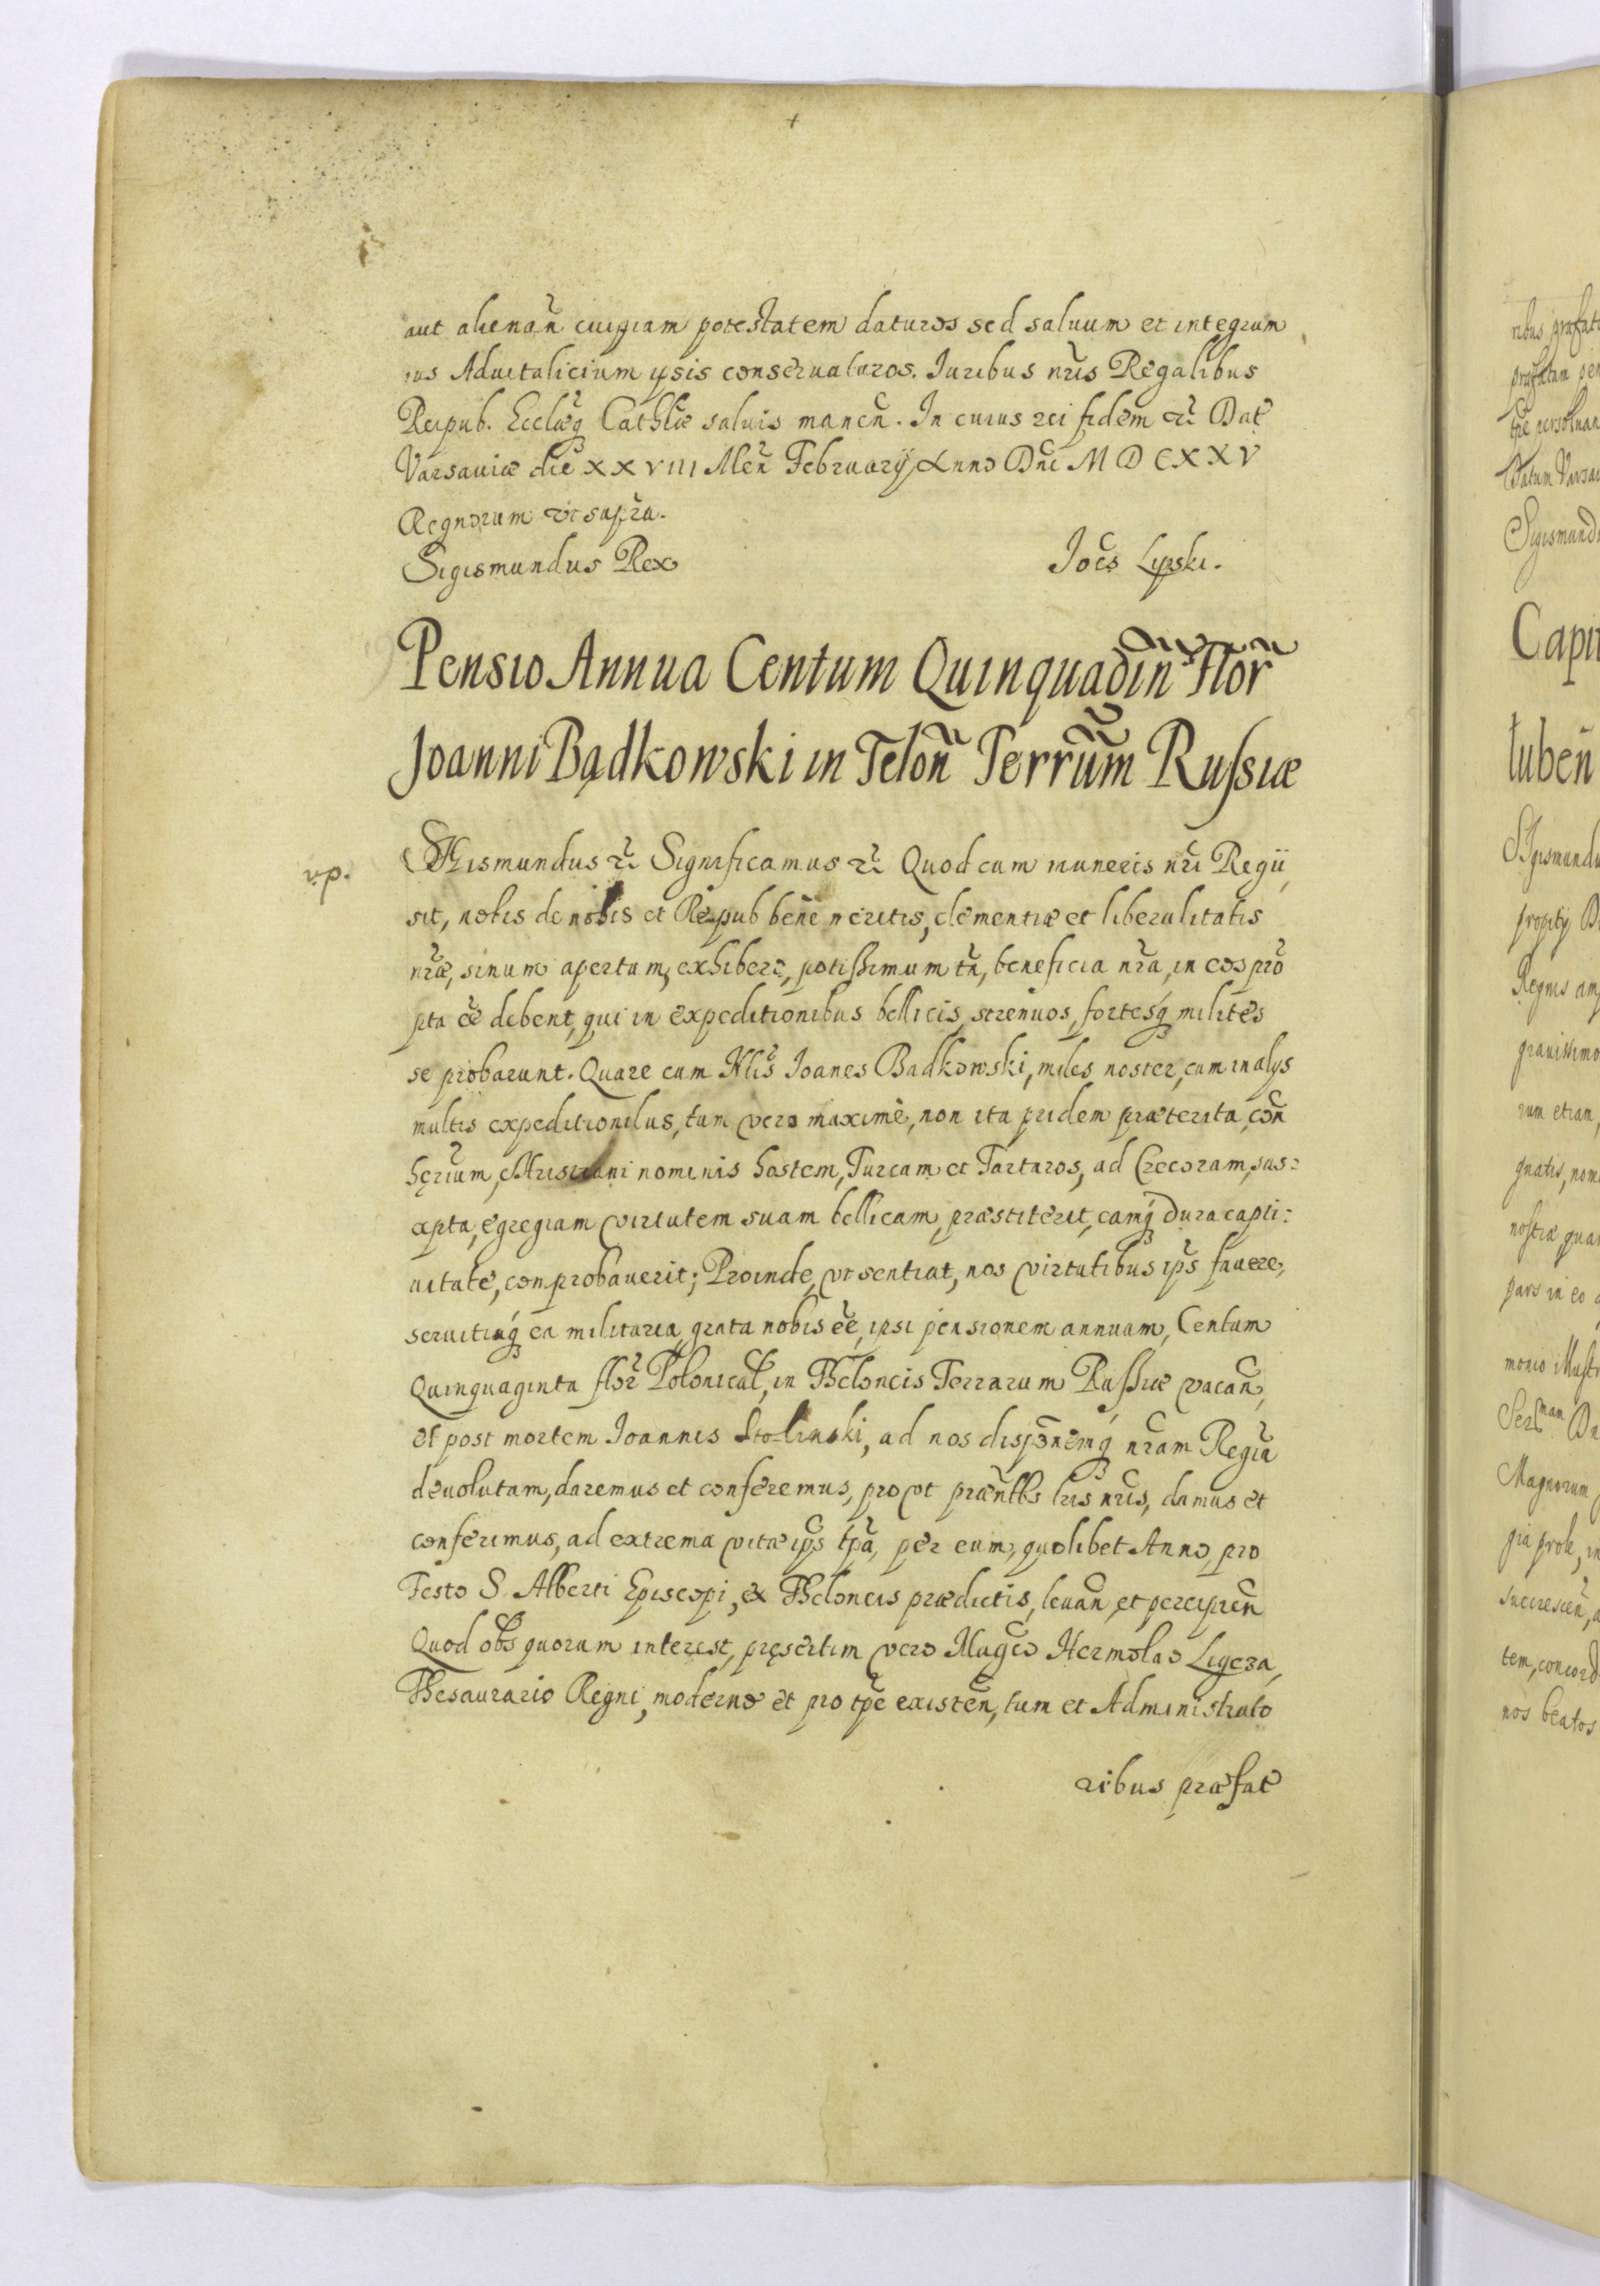 aut alienan̄ cuipiam potestatem daturos sed saluum et integrum
ius Aduitalicium ipsis conseruaturos. Iuribus nr̄is Regalibus
Reipub. Eccl̄æq́ Cath̄læ saluis manen̄. In cuius rei fidem etc̄ Dat̄
Varsauiæ die XXVIII Men̄ February Anno Dn̄i MDCXXV
Regnorum vt supra.
Sigismundus Rex Joēs Lipski.
Pensio Annua Centum Quinquagin̄ Flor̄
Joanni Bądkowski in Telon̄ Terrar̄um Russiæ
v.p.
Sigismundus etc̄ Significamus etc̄ Quod cum muneris nr̄i Regii
sit, nobis de nobis et Reipub ben̄e meritis, clementiæ et liberalitatis
nr̄æ, sinum apertum, exhibere, potissimum tn̄, beneficia nr̄a, in eos pro
pta ēe debent, qui in expeditionibus bellicis, strenuos, fortesq́ milites
se probarunt. Quare cum Nl̄is Joanes Badkowski, miles noster, cum in alys
multis expeditionibus, tum vero maximè, non ita pridem præterita, con̄
hęrium, Christiani nominis hostem, Turcam et Tartaros, ad Cecoram, sus:
cepta, egregiam virtutem suam bellicam, præstiterit, eamq́ dura capti:
uitate, comprobauerit; Proinde, vt sentiat, nos virtutibus ip̄s fauere,
seruitiaq́ ea militaria, grata nobis ēe, ipsi pensionem annuam, Centum
Quinquaginta flor̄ Polonical̄, in Theloneis Terrarum Russiæ vacan̄,
et post mortem Joannis Stolinski, ad nos dispōnemq́ nr̄am Regia
deuolutam, daremus et conferemus, prout præn̄tbs lr̄is nr̄is, damus et
conferimus, ad extrema vitæ ip̄s tp̄a, per eum, quolibet Anno, pro
Festo S. Alberti Episcopi, ex Theloneis prædictis, leuan̄ et percipien̄
Quod ob̄s quorum interest, pręsertim vero Maḡco Hermolao Ligeza,
Thesaurario Regni, moderno et pro tp̄e existen̄, tum et Administrato
ribus præfat̄